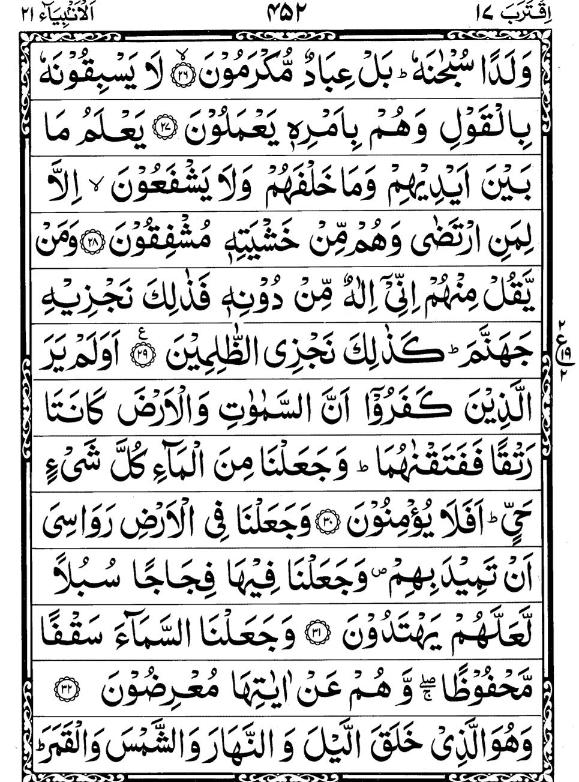 اِقْتَرَبَ ١٧ ٤٥٢ اَلْاَنْۢبِيَآء ٢١
وَلَدًا سُبْحٰنَهٗ ؕ بَلْ عِبَادٌ مُّكْرَمُوْنَ ۙ‏﴿۲۶﴾ لَا يَسْبِقُوْنَهٗ
بِالْقَوْلِ وَهُمْ بِاَمْرِهٖ يَعْمَلُوْنَ ﴿۲۷﴾ يَعْلَمُ مَا
بَيْنَ اَيْدِيْهِمْ وَمَا خَلْفَهُمْ وَلَا يَشْفَعُوْنَ ۙ اِلَّا
لِمَنِ ارْتَضٰى وَهُمْ مِّنْ خَشْيَتِهٖ مُشْفِقُوْنَ ﴿۲۸﴾ وَمَنْ
يَّقُلْ مِنْهُمْ اِنِّىْۤ اِلٰهٌ مِّنْ دُوْنِهٖ فَذٰلِكَ نَجْزِيْهِ
جَهَنَّمَ ؕ كَذٰلِكَ نَجْزِى الظّٰلِمِيْنَ ﴿۲۹﴾ ع اَوَلَمْ يَرَ
٢ ع ١٩ ٢
الَّذِيْنَ كَفَرُوْۤا اَنَّ السَّمٰوٰتِ وَالْاَرْضَ كَانَتَا
رَتْقًا فَفَتَقْنٰهُمَا ؕ وَجَعَلْنَا مِنَ الْمَآءِ كُلَّ شَىْءٍ
حَىٍّ ؕ اَفَلَا يُؤْمِنُوْنَ ﴿۳۰﴾ وَجَعَلْنَا فِى الْاَرْضِ رَوَاسِىَ
اَنْ تَمِيْدَ بِهِمْ ۪ وَجَعَلْنَا فِيْهَا فِجَاجًا سُبُلًا
لَّعَلَّهُمْ يَهْتَدُوْنَ ﴿۳۱﴾ وَجَعَلْنَا السَّمَآءَ سَقْفًا
مَّحْفُوْظًا ۖۚ وَّ هُمْ عَنْ اٰيٰتِهَا مُعْرِضُوْنَ ﴿۳۲﴾
وَهُوَ الَّذِىْ خَلَقَ الَّيْلَ وَ النَّهَارَ وَالشَّمْسَ وَالْقَمَرَ ؕ